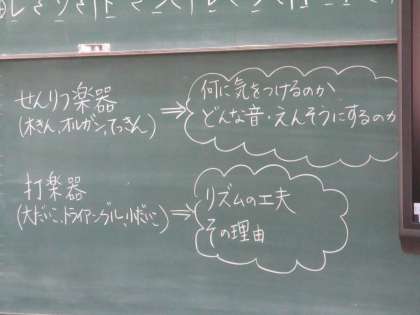 せんりつ楽器
(木きん、オルガン、てっきん)
⇒
何に気をつけるのか
どんな音・えんそうにするのか
打楽器
(大だいこ、トライアングル、小だいこ)
⇒
リズムの工夫
その理由